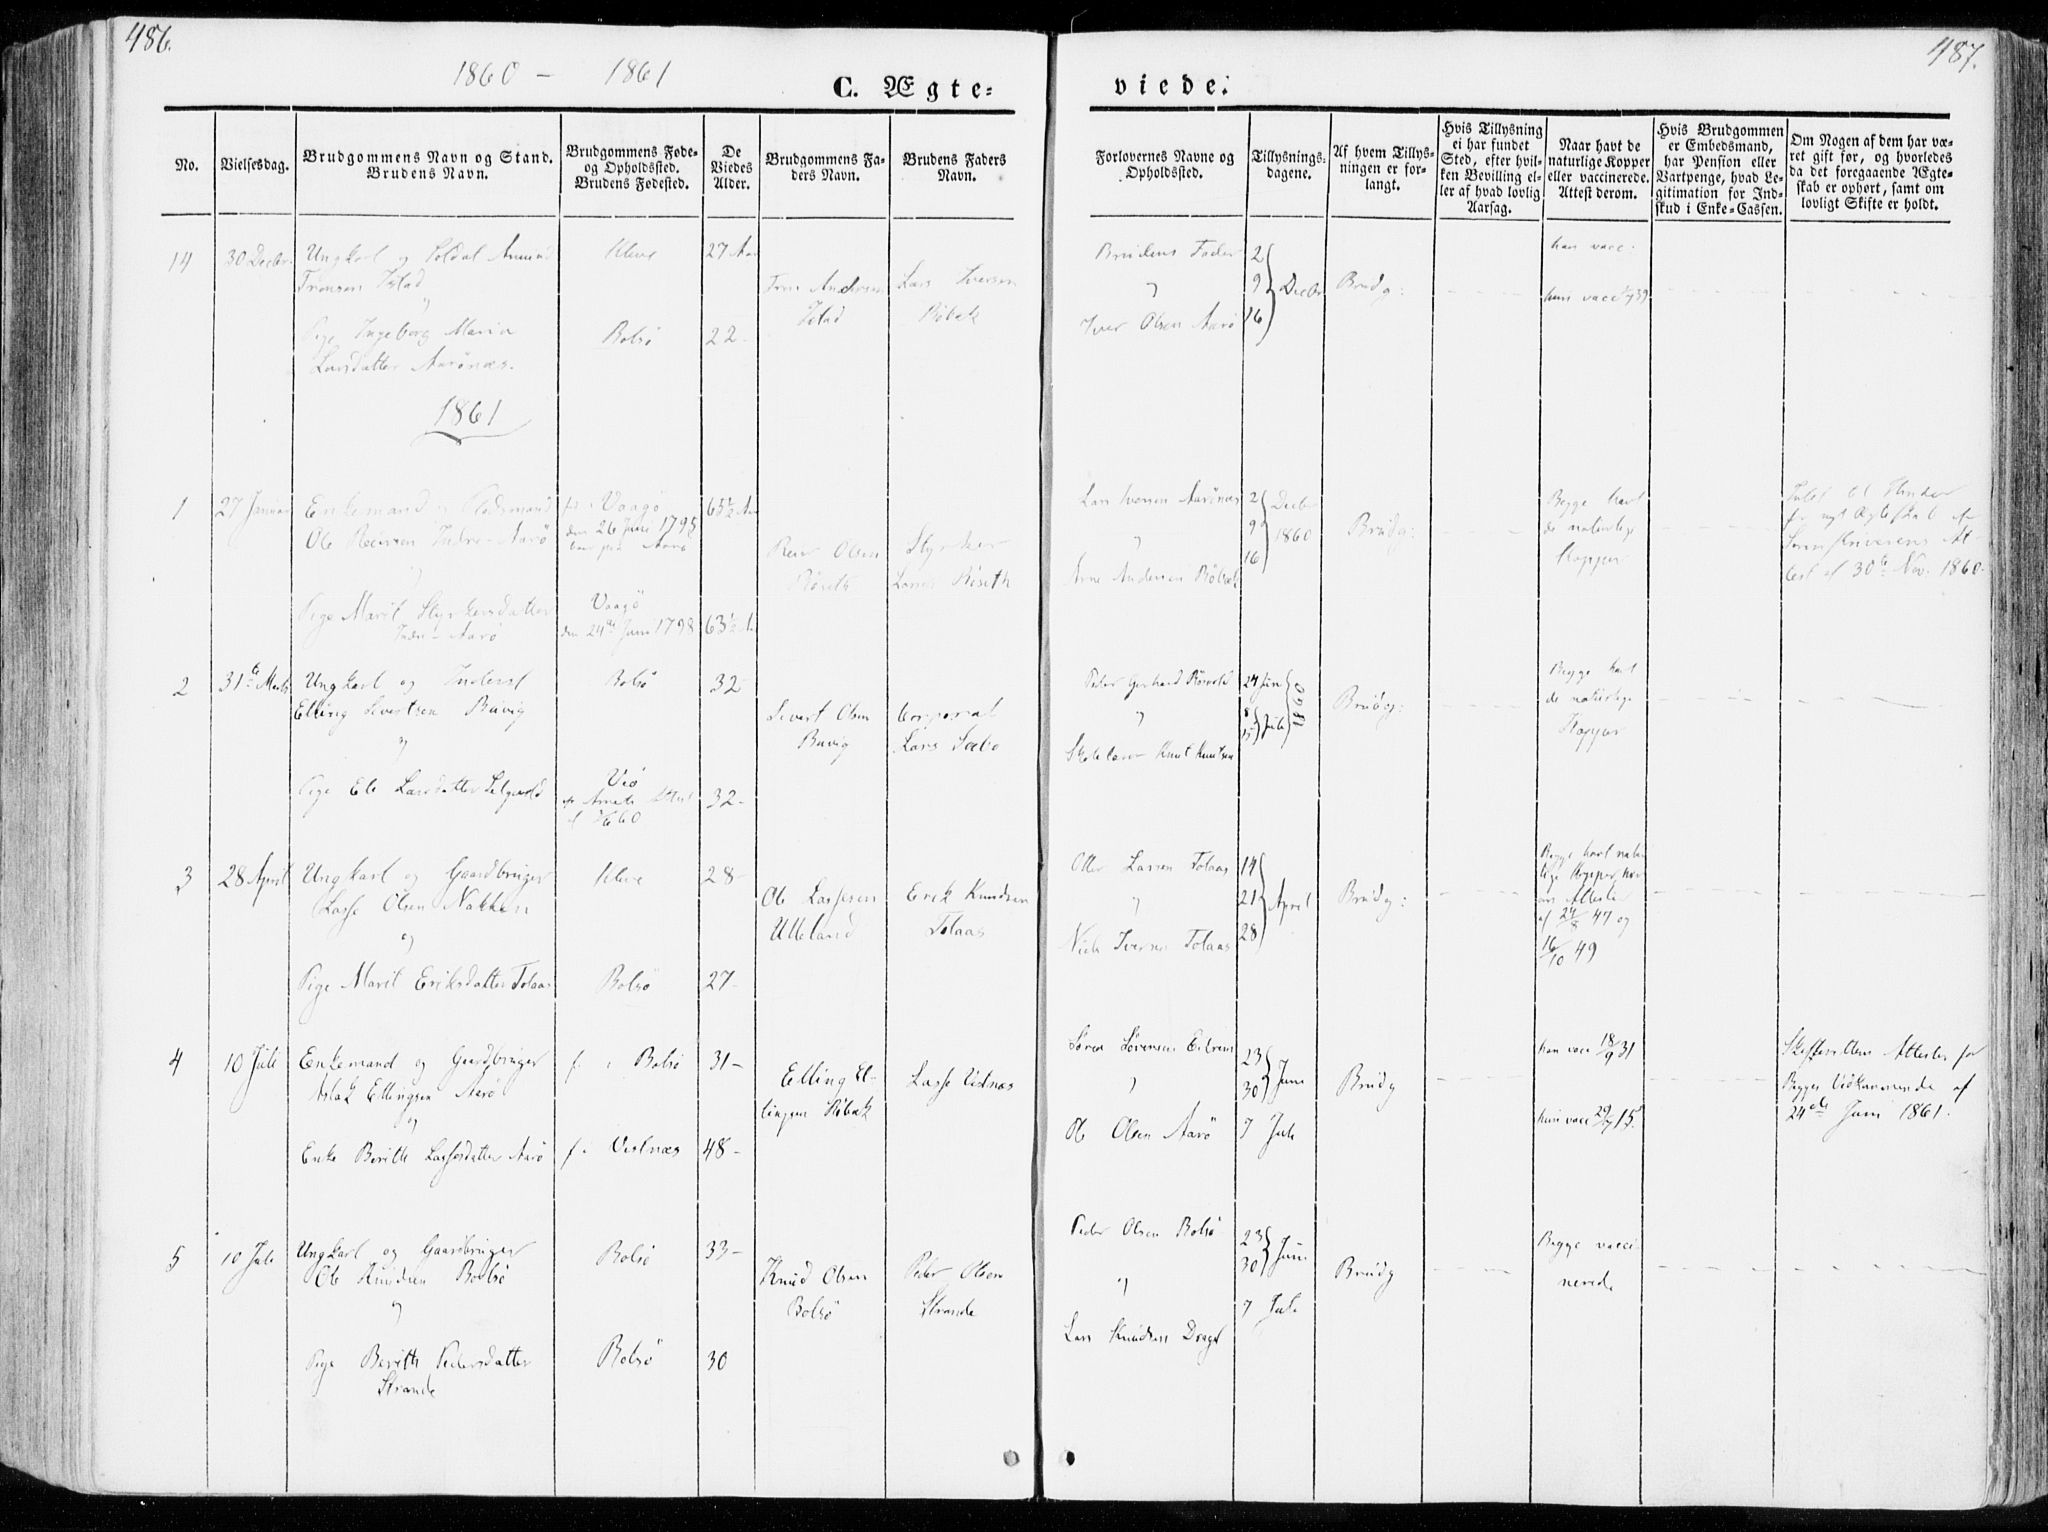 486.
487.
1860 - 1861
C. Ægte-
viede.
No.
Vielsesdag.
Brudgommens Navn og Stand.
Brudens Navn.
Brudgommens Føde-
og Opholdssted.
Brudens Fødested.
De
Viedes
Alder.
Brudgommens Fa-
ders Navn.
Brudens Faders
Navn.
Forlovernes Navne og
Opholdssted.
Tillysnings-
dagene.
Af hvem Tillys-
ningen er for-
langt.
Hvis Tillysning
ei har fundet
Sted, efter hvil-
ken Bevilling el-
ler af hvad lovlig
Aarsag.
Naar havt de
naturlige Kopper
eller vaccinerede.
Attest derom.
Hvis Brudgommen
er Embedsmand,
har Pension eller
Vartpenge, hvad Le-
gitimation for Ind-
skud i Enke-Cassen.
Om Nogen af dem har væ-
ret gift før, og hvorledes
da det foregaaende Ægte-
skab er ophørt, samt om
lovligt Skifte er holdt.
14
30 Decbr.
Ungkarl og Soldat
Tronsen Istad
og
Pige Ingeborg Maria
Larsdatter Aarönæs.
Kleve
Bolsö
27 Aar
22-
Tron Andersen
Istad
Lars Iversen
Röbæk
Brudens Fader
og
Iver Olsen Aarö
2
9
16
Decbr
Brudg:
han vacc.
hun vacc
1861
1
27 Januar
Enkemand og
Ole Reiersen Indre-Aarö
og
Pige Marit Styrkersdatter
Indre-Aarö
Vaagö
den 26 Juni 1795
Aarö
Vaagö
den 24de Juni 1798
65½ Aar
63½ A.
Reier Olsen
Röseth
Styrker
Larsen Röseth
Lars Iversen Aarönæs
og
Arne Andersen Röbæk
2
9
16
Decbr
1860
Brudg:
Begge havt
de naturlige
Kopper
nyt Ægteskab
Sorenskriverens At-
test af 30te Nov. 1860.
2
31te Marts
Ungkarl og Inderst
Elling Sivertsen Buvig
og
Pige Eli Larsdatter
Bolsö
Veö
Attest
32-
32-
Sivert Olsen
Buvig
Corporal
Lars Sæbö
Peder Gerhard
og
Skolelærer Knut Knutsen
24 Juni
8
15
Juli
1860
Brudg:
Begge havt
de naturlige
Kopper
3
28 April
Ungkarl og Gaardbruger
Lasse Olsen Nakken
og
Pige Marit Eriksdatter Tolaas
Kleve
Bolsö
28-
27-
Ole Lassesen
Ulleland
Erik Knudsen
Tolaas
Otter Larsen Tolaas
og
Niels Iversen Tolaas
14
21
28
April
Brudg:
Begge havt natur-
lige Kopper,
Attester
af 24/8 47 og
16/10 49
4
10 Juli
Enkemand og Gaardbruger
Aslak Ellingsen Aarö
og
Enke Berith Lassesdatter Aarö
f. i Bolsö
f. i Vestnæs
31-
48-
Elling El-
lingsen Röbæk
Lasse Vestnæs
Sören Sörensen Eidrem
og
Ole Olsen Aarö
23
30
Juni
7 Juli
Brudg
han vacc 18/9 31
hun vacc 29/7 15.
Skifterettens Attester for
Begges Vedkommende af
24de Juni 1861.
5
10 Juli
Ungkarl og Gaardbruger
Ole Knudsen Bolsö
og
Pige Berith Pedersdatter
Strande
Bolsö
Bolsö
33-
30
Knud Olsen
Bolsö
Peder Olsen
Strande
Peder Olsen Bolsö
og
Lars Knudsen Draget
23
30
Juni
7 Juli
Brudg
Begge vacci-
nerede